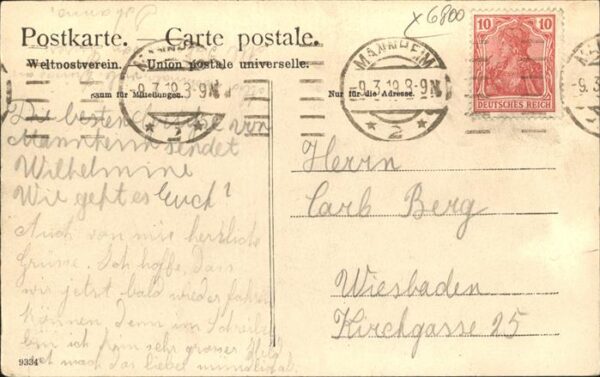 x6800
Postkarte. – Carte postale.
Weltpostverein. – Union postale universelle.
Raum für Mitteilungen.
Nur für die Adresse.
MANNHEIM
9.3.10.8-9N
* 2 *
MANNHEIM
9.3.10.8-9N
* 2 *
10 10
DEUTSCHES REICH
-9.3
Die besten Grüsse von
Mannheim sendet
Wilhelmine
Wie geht es Euch?
Auch von mir herzliche
Grüsse. Ich hoffe, dass
wir jetzt bald wieder fahren
können denn im Schreiben
bin ich kein sehr grosser Held
das lieber
Herrn
Carl Berg
Wiesbaden
Kirchgasse 25
9334